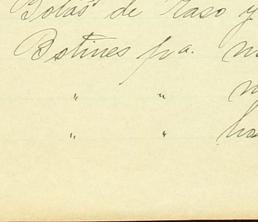 Botas de Raso y
Botines pa.
" "
" "